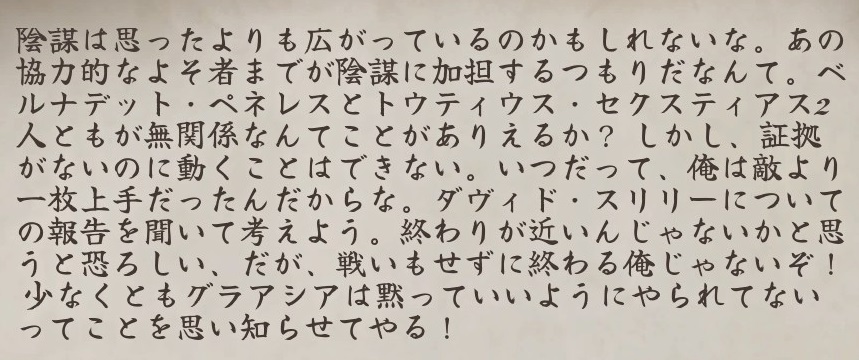 陰謀は思ったよりも広がっているのかもしれないな。あの
協力的なよそ者までが陰謀に加担するつもりだなんて。ベ
ルナデット・ペネレスとトウティウス・セクスティアス2
人ともが無関係なんてことがありえるか？ しかし、証拠
がないのに動くことはできない。いつだって、俺は敵より
一枚上手だったんだからな。ダヴィド・スリリーについて
の報告を聞いて考えよう。終わりが近いんじゃないかと思
うと恐ろしい、だが、戦いもせずに終わる俺じゃないぞ！
少なくともグラアシアは黙っていいようにやられてない
ってことを思い知らせてやる！